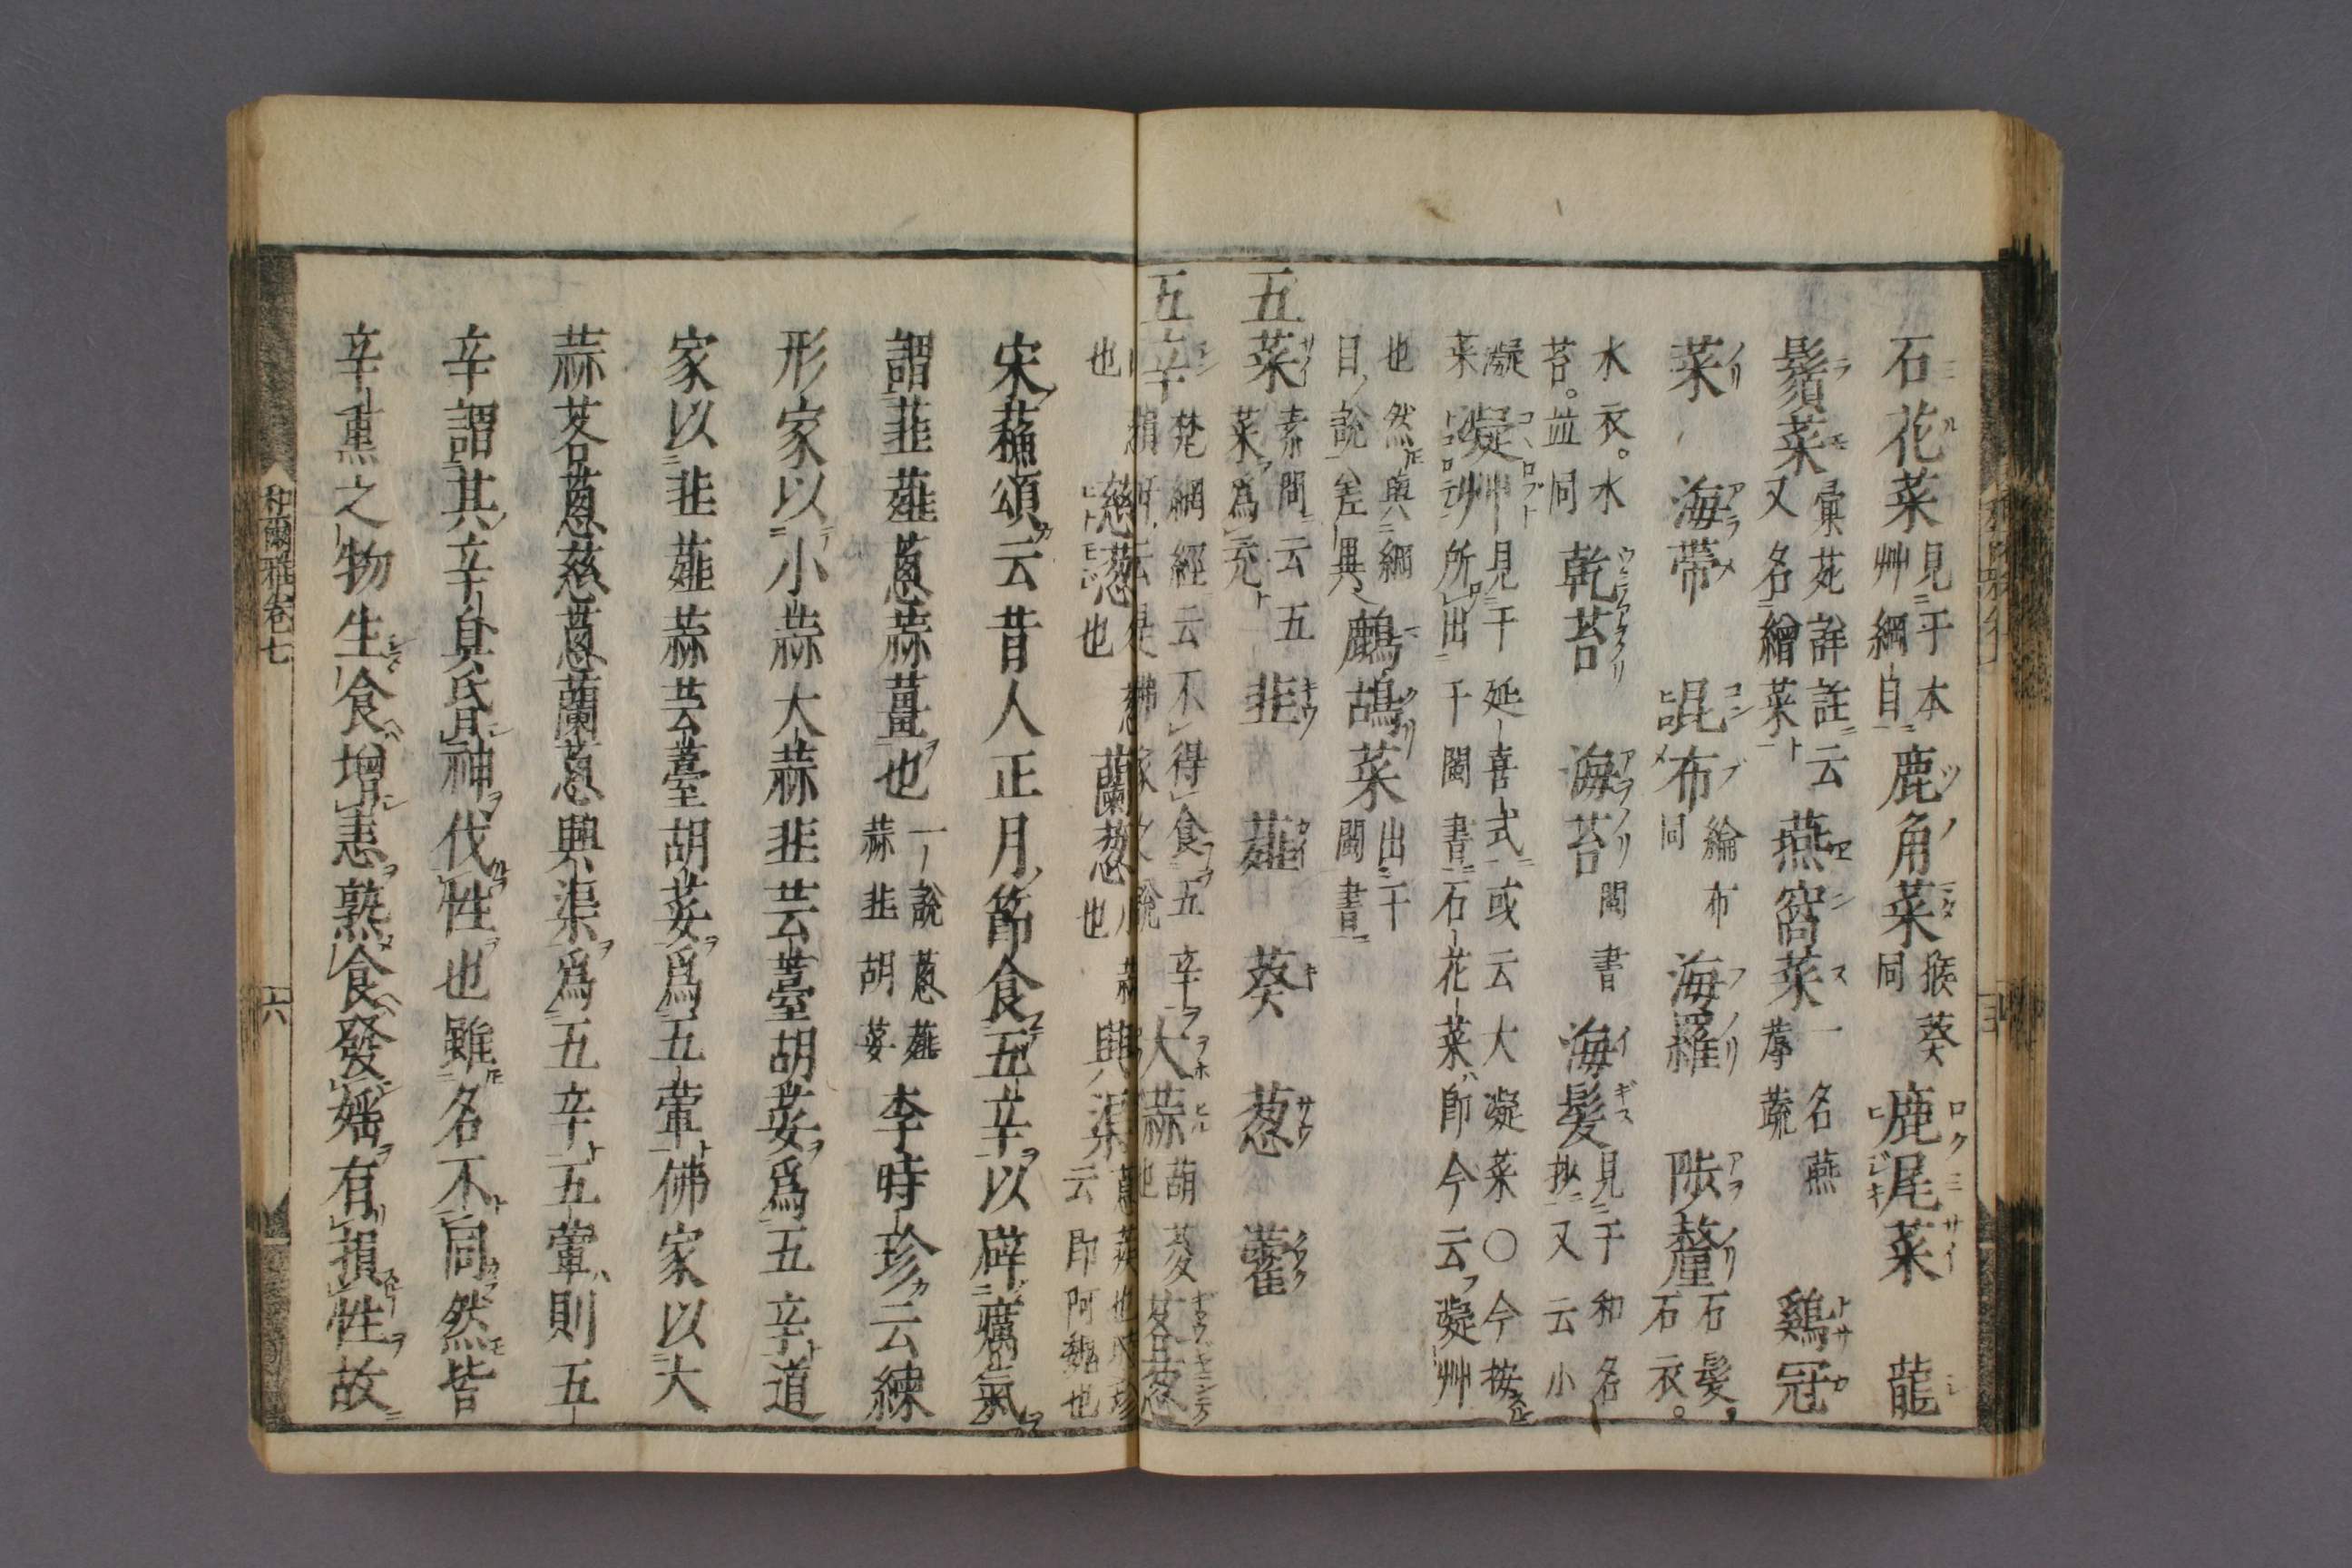 石花菜 見于本艸綱自 鹿角菜 猴葵同 鹿尾菜 龍
鬚菜 彙苑詳註云又名繒菜 燕窩菜 一名燕蔬 鷄冠
菜 海帶 昆布 綸布同 海羅 陟釐 石髮石衣
水衣水苔並同 乾苔 海苔 閩書 海髮 見于和名抄又云小
凝菜 凝艸 見于延喜式或云大凝菜○今按
所出于閩書石花菜即今云凝艸
也然與綱目說差異 鷓鴣菜 出于閩書
五菜 素問云五菜爲充 韭 薤 葵 葱 藿
五辛 梵網經云不得食五辛 大蒜 胡也 茖葱
也 慈葱 也 蘭葱 也 興渠 云即阿魏也
宋蘓頌云昔人正月節食五辛以辟癘氣
謂韭薤葱蒜薑也 一說葱薤蒜韭胡荽 李時珍云練
形家以小蒜大蒜韭芸薹胡荽爲五辛道
家以韭薤蒜芸薹胡荽爲五葷佛家以大
蒜茖葱慈葱蘭葱興渠爲五辛五葷則五
辛謂其辛臭昏神伐性也雖名不同然皆
辛熏之物生食增恚熟食發婬有損性故
和爾雅卷七
六